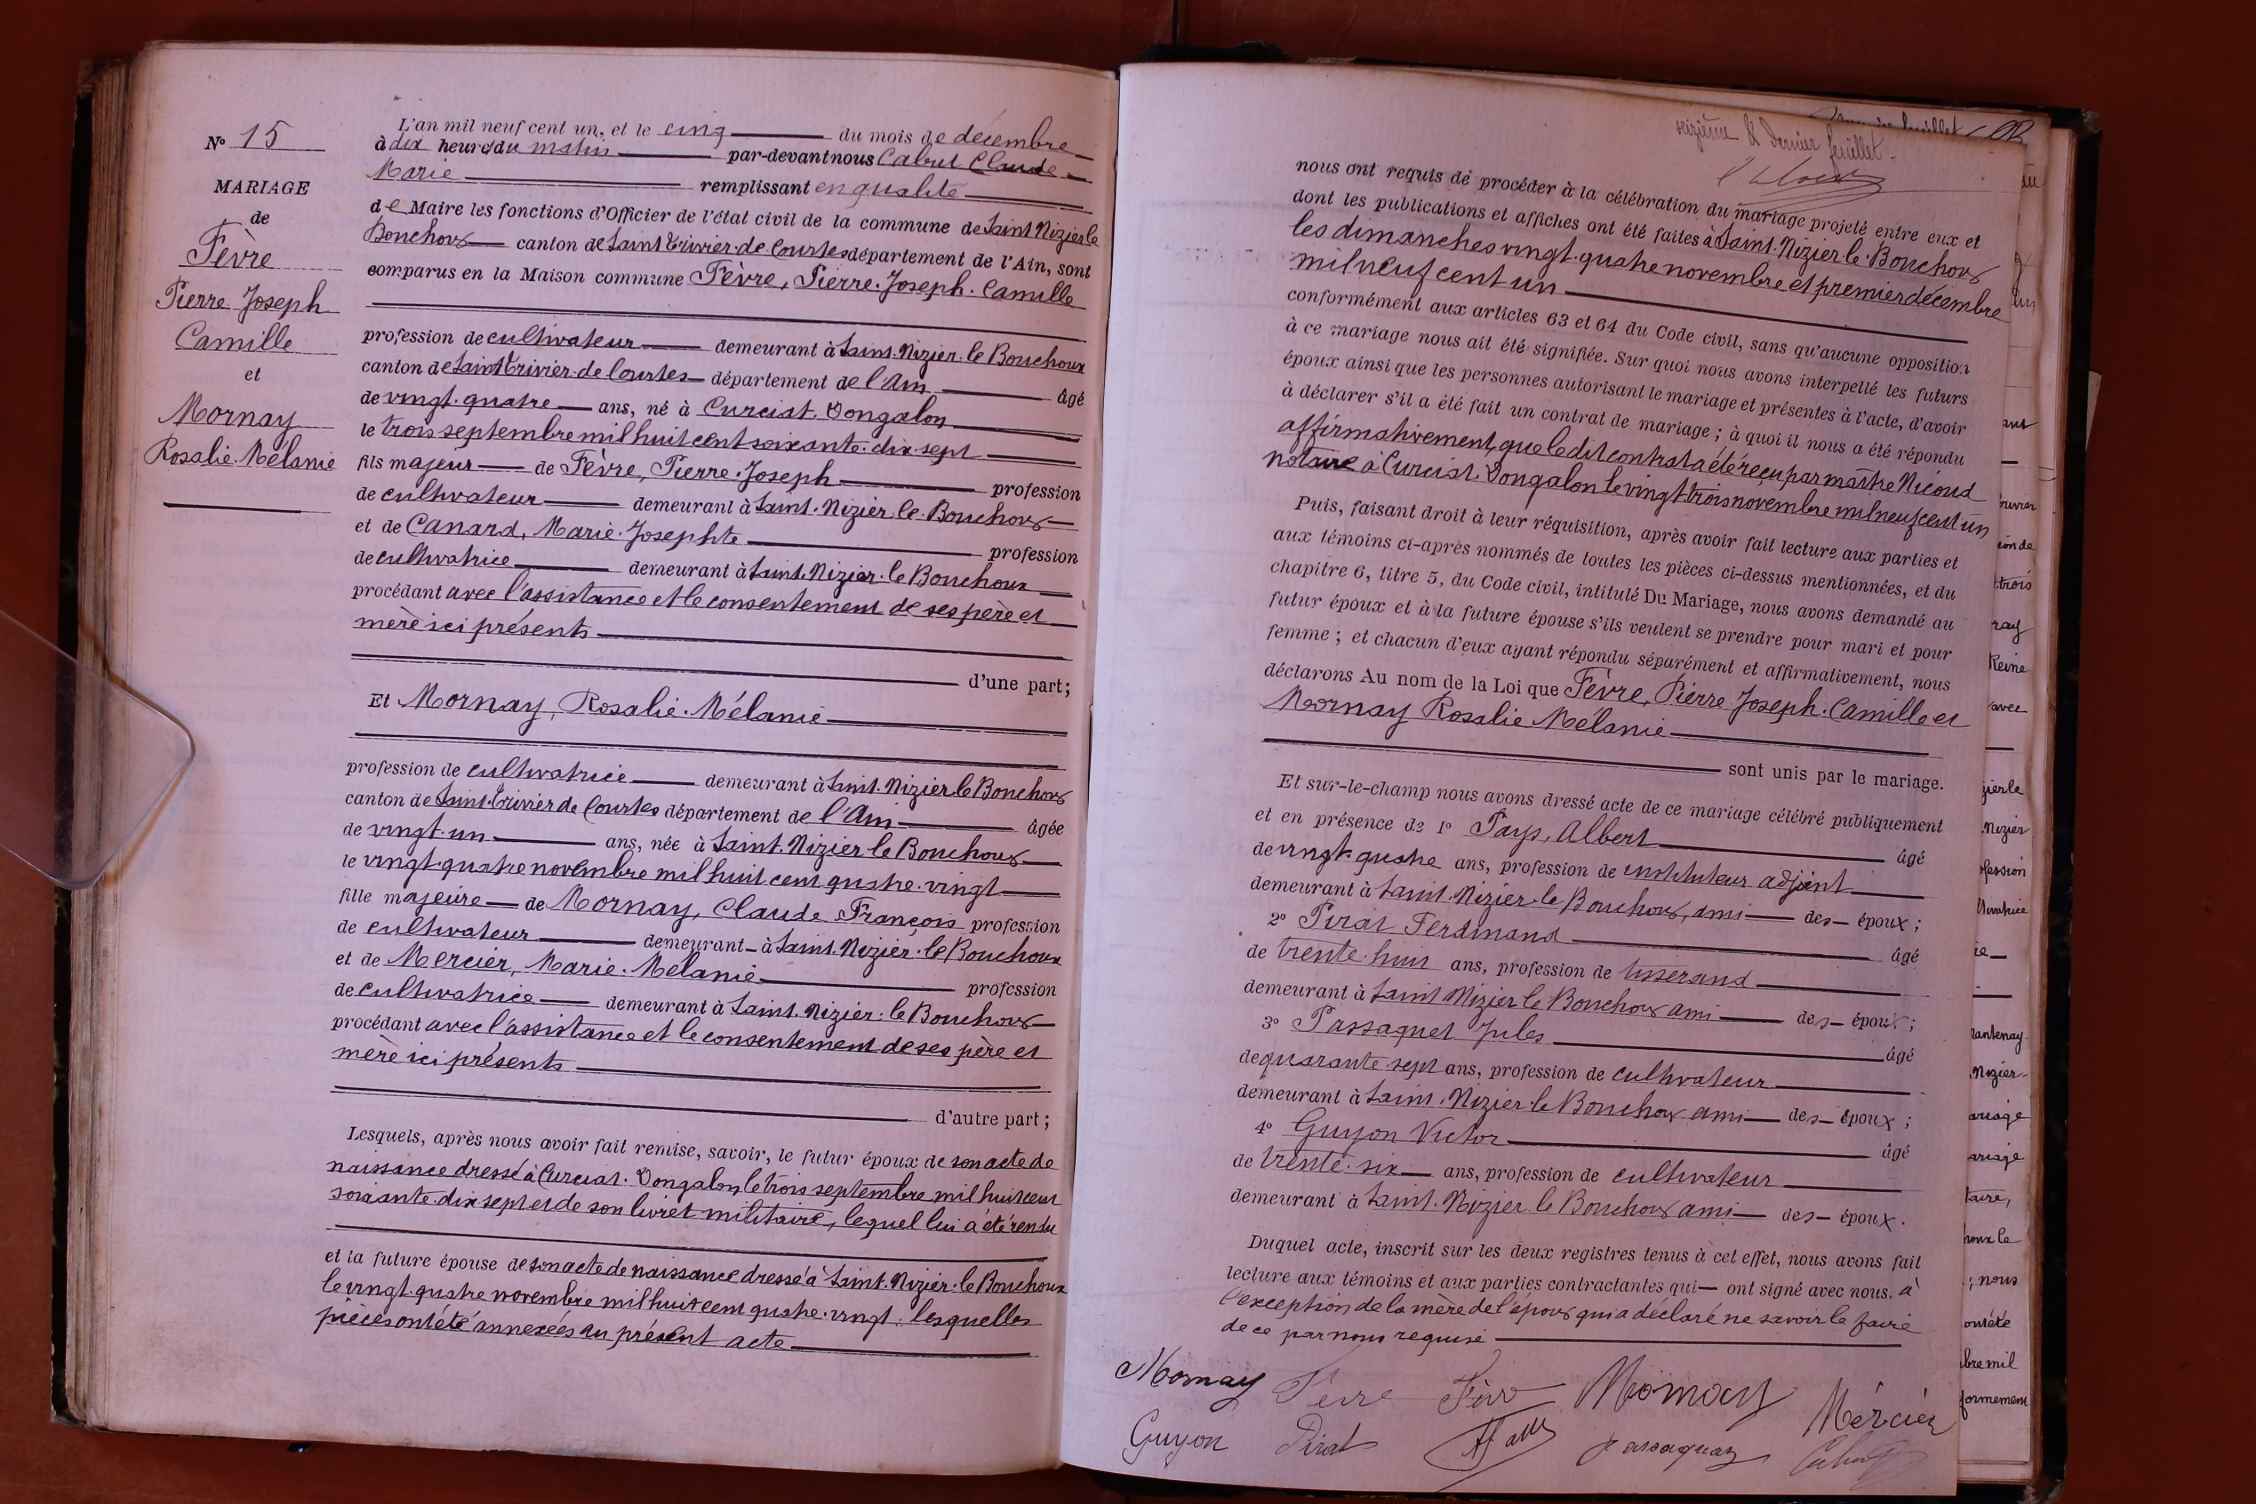 N° 15
MARIAGE
de
Fèvre
Pierre Joseph
Camille
et
Mornay
Rosalie Mélanie
L'an mil neuf cent un, et le cinq du mois de décembre
à dix heures du matin par-devant nous Cabut Claude
Marie remplissant en qualité
de Maire les fonctions d'Officier de l'état civil de la commune de Saint Nizier le
Bouchoux canton de Saint Trivier de Courtes département de l'Ain, sont
comparus en la Maison commune Fèvre, Pierre Joseph Camille
profession de cultivateur demeurant à Saint Nizier le Bouchoux
canton de Saint Trivier de Courtes département de l'Ain, âgé
de vingt quatre ans, né à Curciat Dongalon
le trois septembre mil huit cent soixante dix sept
fils majeur de Fèvre, Pierre Joseph profession
de cultivateur demeurant à Saint Nizier le Bouchoux
et de Canard, Marie Josephte profession
de cultivatrice demeurant à Saint Nizier le Bouchoux
procédant avec l'assistance et le consentement de ses père et
mère ici présents
d'une part;
Et Mornay, Rosalie Mélanie
profession de cultivatrice demeurant à Saint Nizier le Bouchoux
canton de Saint Trivier de Courtes département de l'Ain âgée
de vingt un ans, née à Saint Nizier le Bouchoux
le vingt quatre novembre mil huit cent quatre vingt
fille majeure de Mornay, Claude François profession
de cultivateur demeurant à Saint Nizier le Bouchoux
et de Mercier, Marie Mélanie profession
de cultivatrice demeurant à Saint Nizier le Bouchoux
procédant avec l'assistance et le consentement de ses père et
mère ici présents
d'autre part;
Lesquels, après nous avoir fait remise, savoir, le futur époux de son acte de
naissance dressé à Curciat Dongalon, le trois septembre mil huit cent
soixante dix sept et de son livret militaire, lequel lui a été rendu
et la future épouse de son acte de naissance dressé à Saint Nizier le Bouchoux
le vingt quatre novembre mil huit cent quatre vingt : lesquelles
pièces ont été annexées au présent acte
seizième & dernier feuillet
nous ont requis de procéder à la célébration du mariage projeté entre eux et
dont les publications et affiches ont été faites à Saint Nizier le Bouchoux
les dimanches vingt quatre novembre et premier décembre
mil neuf cent un
conformément aux articles 63 et 64 du Code civil, sans qu'aucune opposition
à ce mariage nous ait été signifiée. Sur quoi nous avons interpellé les futurs
époux ainsi que les personnes autorisant le mariage et présentes à l'acte, d'avoir
à déclarer s'il a été fait un contrat de mariage ; à quoi il nous a été répondu
affirmativement, que le dit contrat a été reçu par maître Nicoud
notaire à Curciat Dongalon le vingt trois novembre mil neuf cent un
Puis, faisant droit à leur réquisition, après avoir fait lecture aux parties et
aux témoins ci-après nommés de toutes les pièces ci-dessus mentionnées, et du
chapitre 6, titre 5, du Code civil, intitulé Du Mariage, nous avons demandé au
futur époux et à la future épouse s'ils veulent se prendre pour mari et pour
femme ; et chacun d'eux ayant répondu séparément et affirmativement, nous
déclarons Au nom de la Loi que Fèvre, Pierre Joseph Camille et
Mornay Rosalie Mélanie
sont unis par le mariage.
Et sur-le-champ nous avons dressé acte de ce mariage célébré publiquement
et en présence de 1° Pays, Albert âgé
de vingt quatre ans, profession de instituteur adjoint
demeurant à Saint Nizier le Bouchoux, ami des époux ;
2° Pirat Ferdinand âgé
de trente huit ans, profession de tisserand
demeurant à Saint Nizier le Bouchoux ami des époux ;
3° Passaquet Jules âgé
de quarante sept ans, profession de cultivateur
demeurant à Saint Nizier le Bouchoux ami des époux ;
4° Guyon Victor âgé
de trente six ans, profession de cultivateur
demeurant à Saint Nizier le Bouchoux ami des époux.
Duquel acte, inscrit sur les deux registres tenus à cet effet, nous avons fait
lecture aux témoins et aux parties contractantes qui ont signé avec nous, à
l'exception de la mère de l'époux qui a déclaré ne savoir le faire
de ce par nous requise
Mornay Fèvre Fèvre Mornay Mércier
Guyon Pirat Passaquet